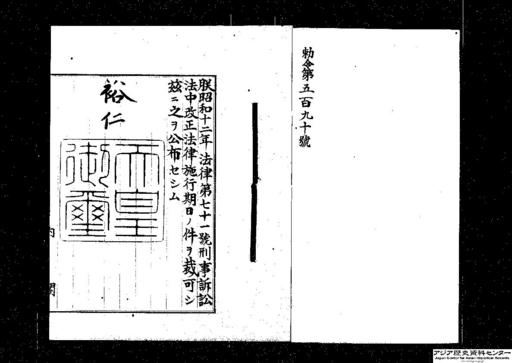 勅令第五百九十號
朕昭和十二年法律第七十一號刑事訴訟
法中改正法律施行期日ノ件ヲ裁可シ
玆ニ之ヲ公布セシム
裕仁
天皇
御璽
内
閣
アジア歴史資料センター
Japan Center for Asian Historical Records